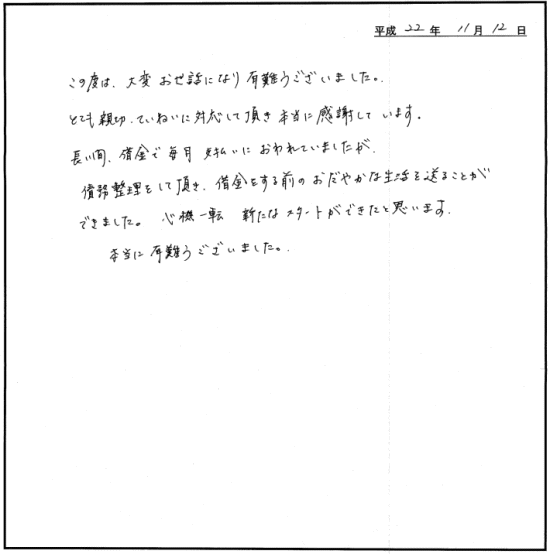 平成 22 年 11 月 12 日
この度は、大変 お世話になり 有難うございました。
とても 親切、ていねいに 対応して 頂き 本当に 感謝して います。
長い間、借金で 毎月 支払いに おわれていましたが、
債務整理をして頂き、借金をする前の おだやかな 生活を送ることが
できました。 心機一転 新たな スタートができたと 思います。
本当に 有難うございました。